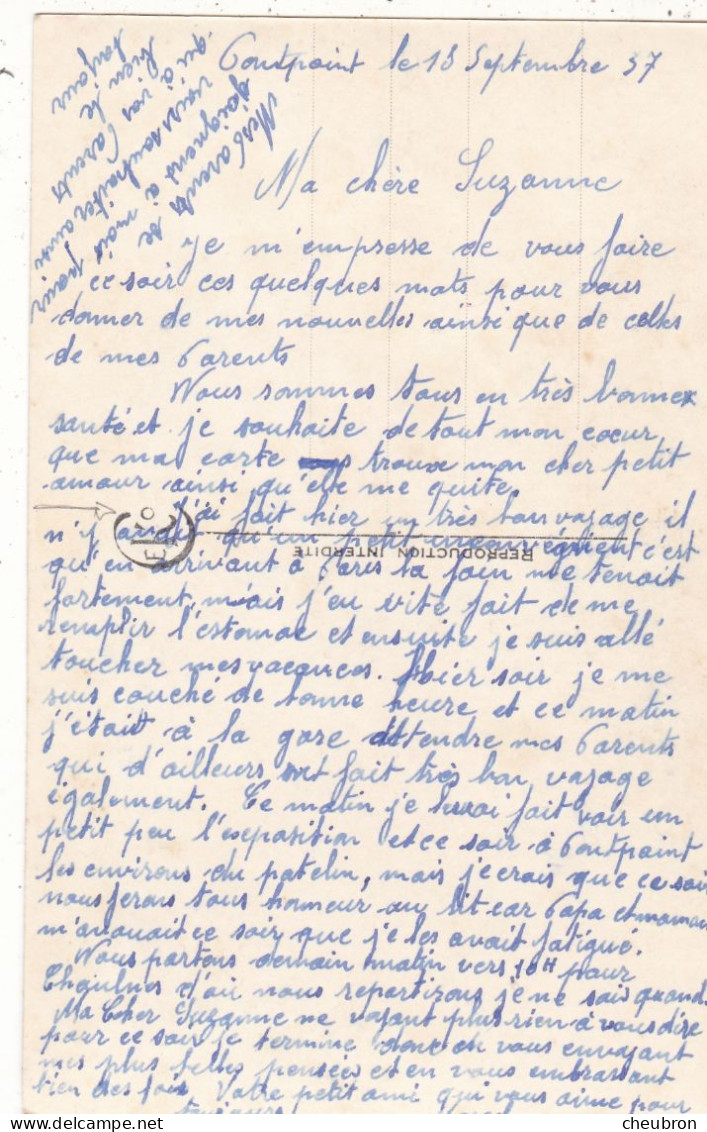 Pontpoint le 18 Septembre 37
Ma chère Suzanne
Je m'empresse de vous faire
ce soir ces quelques mots pour vous
donner de mes nouvelles ainsi que de celles
de mes Parents
Nous sommes tous en très bonnes
santé et je souhaite de tout mon coeur
que ma carte trouve mon cher petit
amour ainsi qu'elle me quite
J'ai fait hier un très bon voyage il
n'j avait qu'un petit c'est
qu'en arrivant à Paris la faim me tenait
fortement, mais j'eu vite fait de me
remplir l'estomac et ensuite je suis allé
toucher mes vacances. Hier soir je me
suis couché de bonne heure et ce matin
j'était à la gare attendre mes Parents
qui d'ailleurs ont fait très bon voyage
également. Ce matin je fait voir un
petit peu l'exposition et ce soir à Pontpoint
les environs du patelin, mais je crois que ce soir
nous ferons tous honneur au lit car Papa et maman
m'avouait ce soir que je les avait fatigué.
Nous partons demain matin vers 10H pour
d'où nous repartirons je ne sais quand.
Ma Cher Suzanne ne voyant plus rien à vous dire
pour ce soir je termine donc en vous envoyant
mes plus belles pensées et en vous embrassant
bien des fois. Votre petit ami qui vous aime pour
toujours
Mes Parents se
joignent à moi pour
vous souhaiter ainsi
qu'à vos Parents
bien le
bonjour
REPRODUCTION INTERDITE
cheubron
delcampe.net